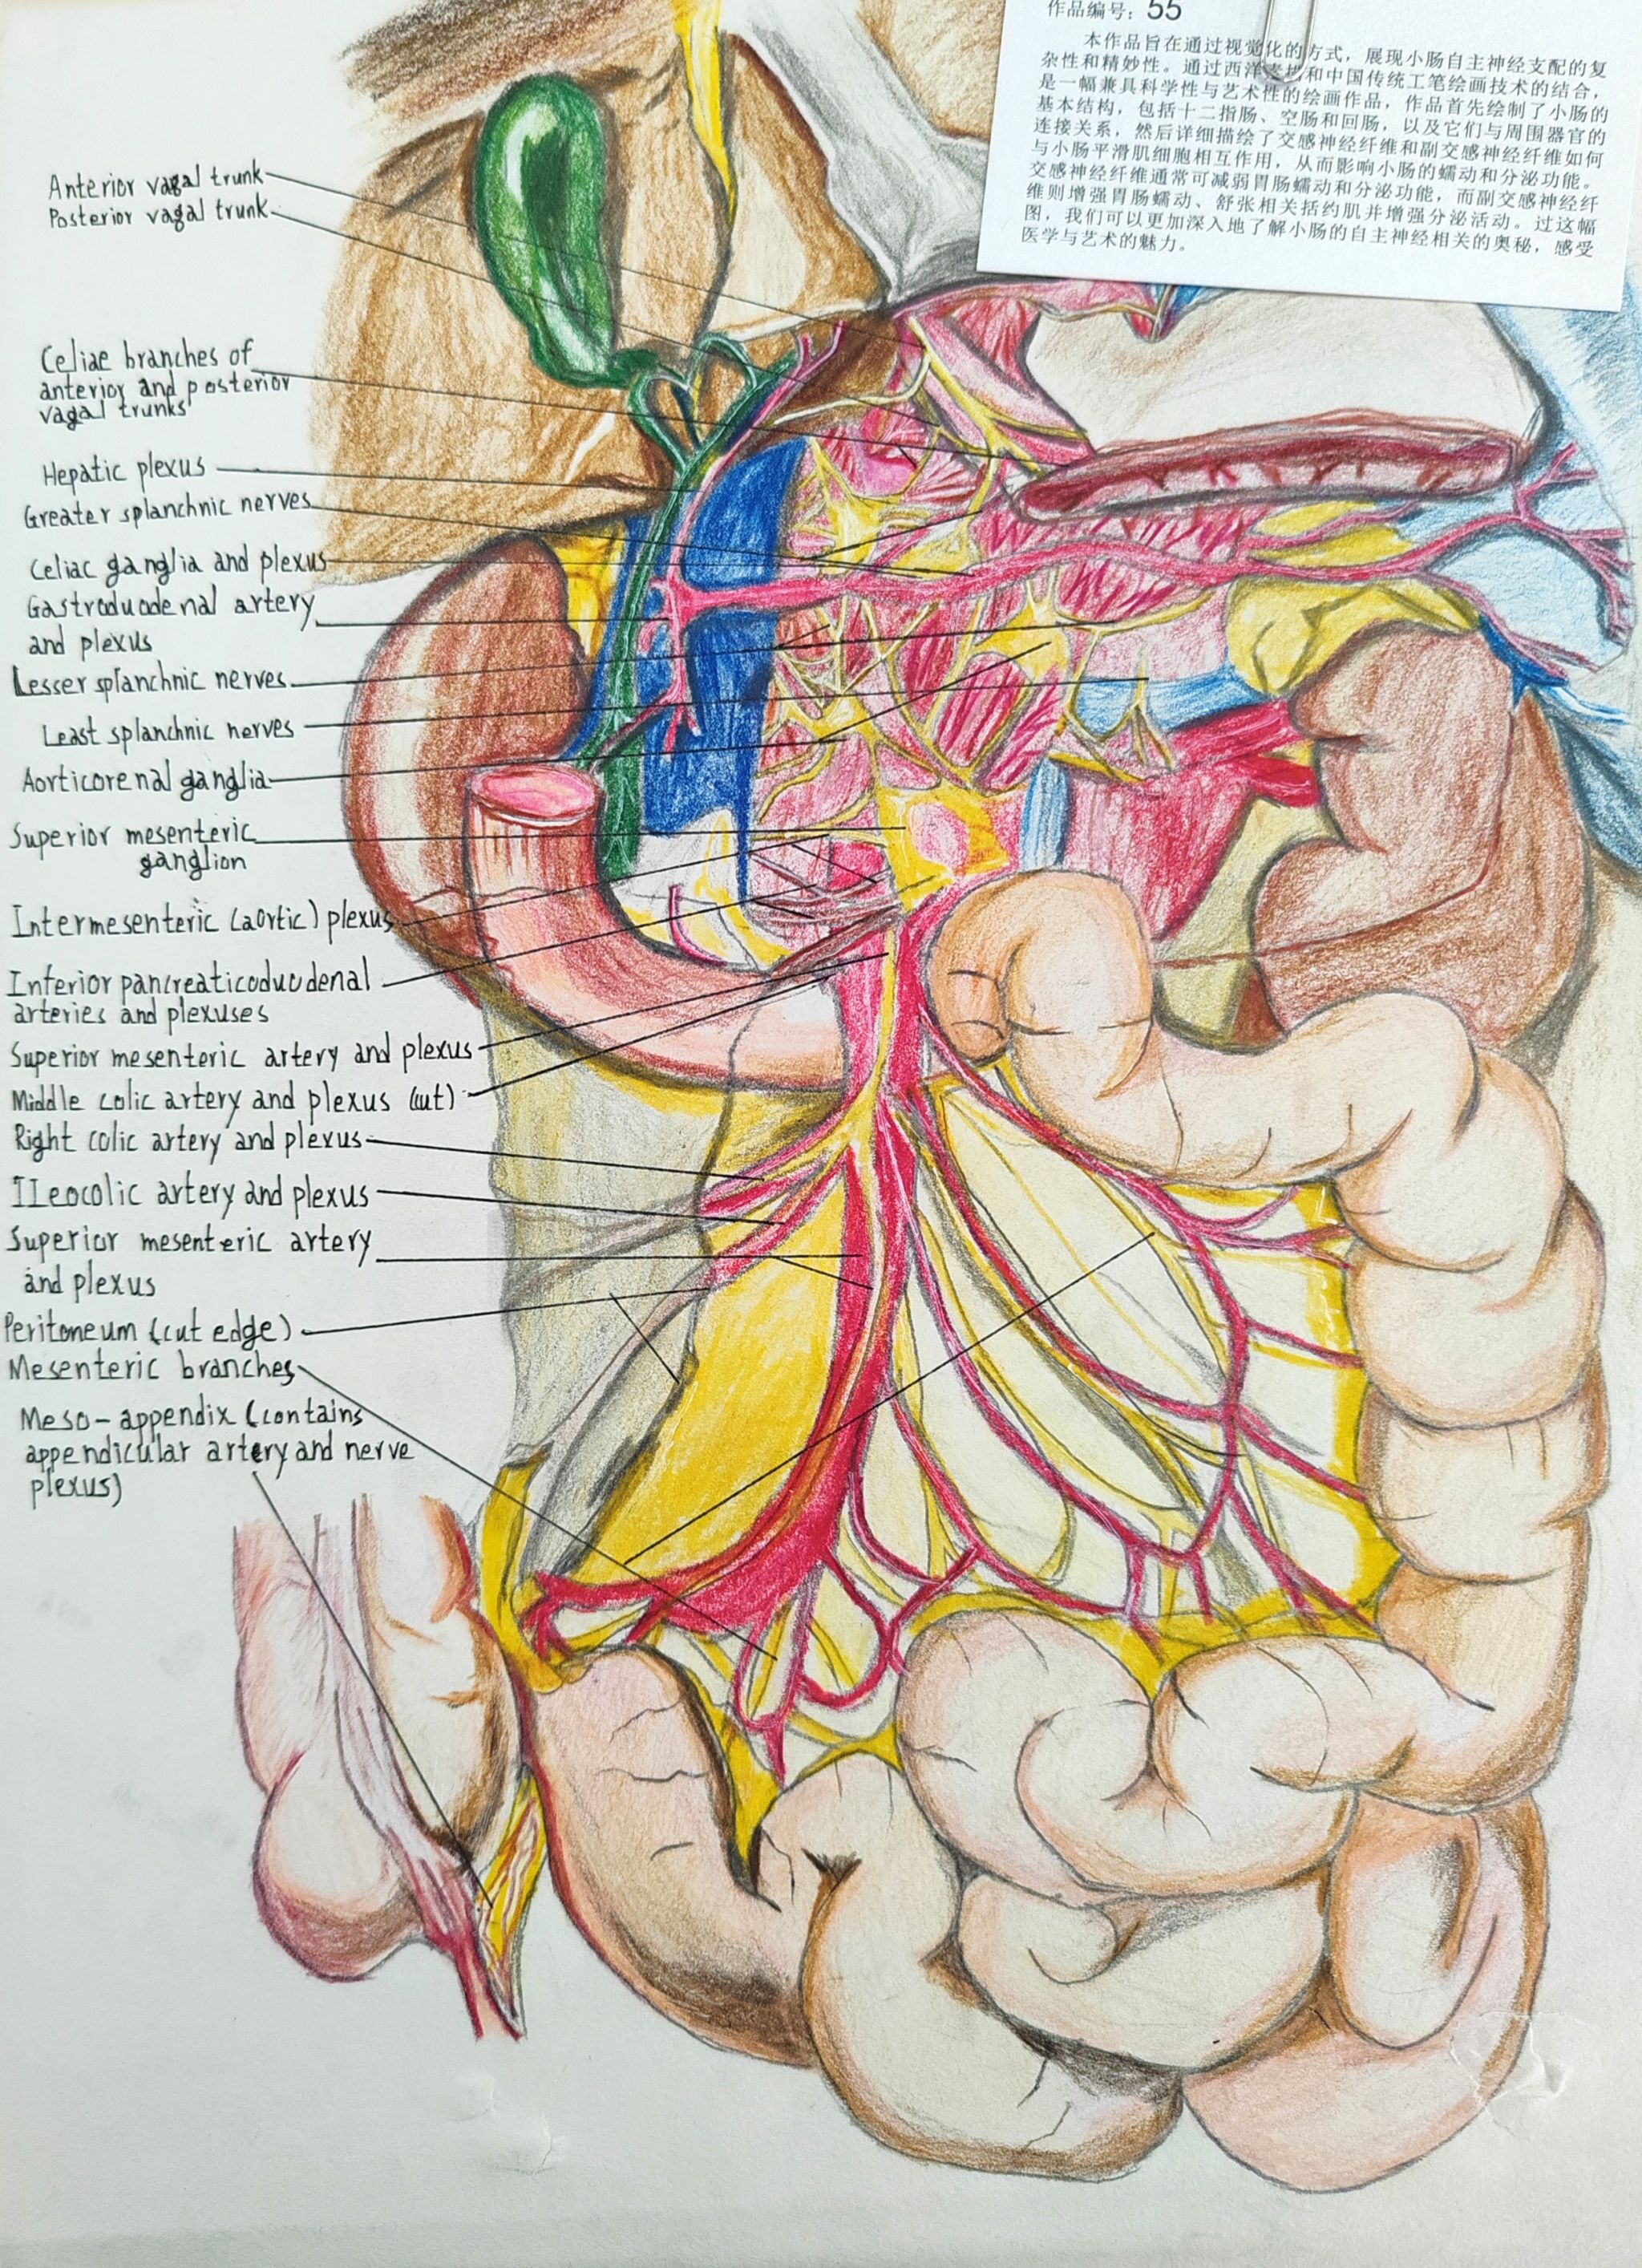 作品编号：55
本作品旨在通过视觉化的方式，展现小肠自主神经支配的复
杂性和精妙性。通过西洋素描和中国传统工笔绘画技术的结合，
是一幅兼具科学性与艺术性的绘画作品，作品首先绘制了小肠的
基本结构，包括十二指肠、空肠和回肠，以及它们与周围器官的
连接关系，然后详细描绘了交感神经纤维和副交感神经纤维如何
与小肠平滑肌细胞相互作用，从而影响小肠的蠕动和分泌功能。
交感神经纤维通常可减弱胃肠蠕动和分泌功能，而副交感神经纤
维则增强胃肠蠕动、舒张相关括约肌并增强分泌活动。过这幅
图，我们可以更加深入地了解小肠的自主神经相关的奥秘，感受
医学与艺术的魅力。
Anterior vagal trunk
Posterior vagal trunk
Celiac branches of
anterior and posterior
vagal trunks
Hepatic plexus
Greater splanchnic nerves
Celiac ganglia and plexus
Gastroduodenal artery
and plexus
Lesser splanchnic nerves
Least splanchnic nerves
Aorticorenal ganglia
Superior mesenteric
ganglion
Intermesenteric (aortic) plexus
Inferior pancreaticoduodenal
arteries and plexuses
Superior mesenteric artery and plexus
Middle colic artery and plexus (cut)
Right colic artery and plexus
Ileocolic artery and plexus
Superior mesenteric artery
and plexus
Peritoneum (cut edge)
Mesenteric branches
Meso-appendix (contains
appendicular artery and nerve
plexus)